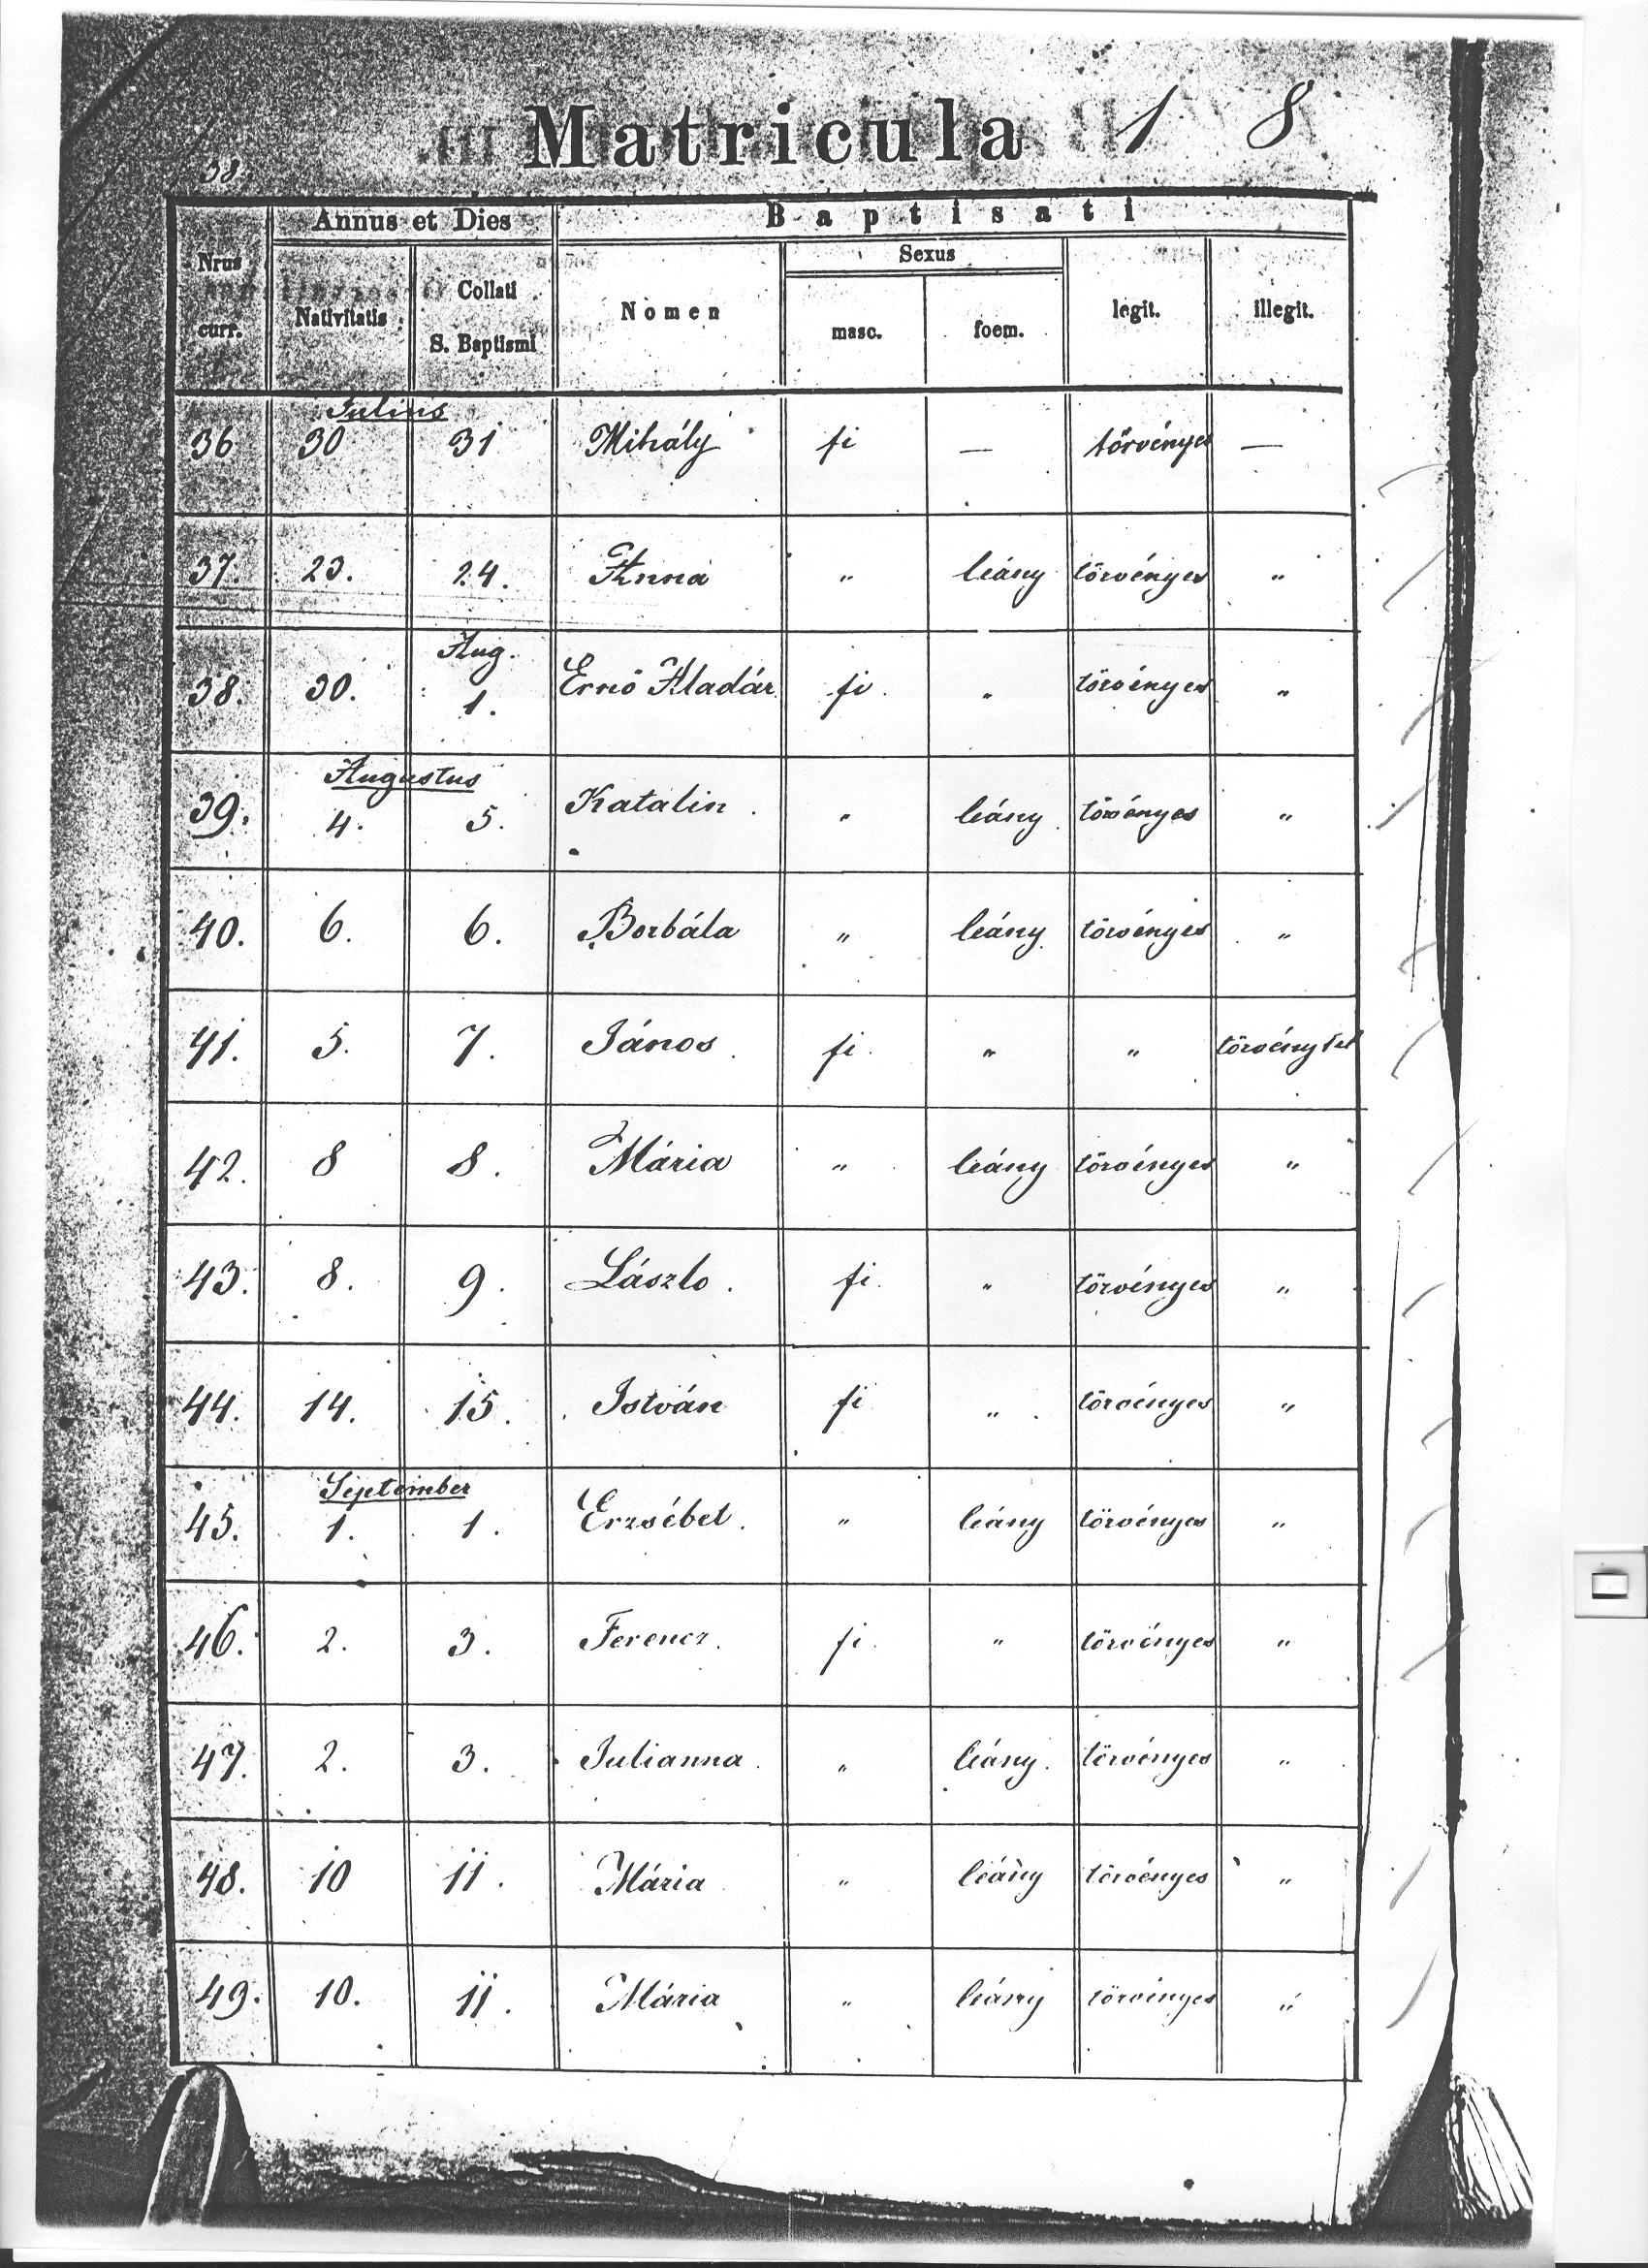 Matricula 1 8
38.
Annus et Dies Baptisati
Nrus curr. Nativitatis Collati S. Baptismi Nomen Sexus masc. foem. legit. illegit.
Julius
36 30 31 Mihály fi — törvényes —
37. 23. 24. Anna „ leány törvényes „
Aug.
38. 30. 1. Ernő Aladár fi. „ törvényes „
Augustus
39. 4. 5. Katalin. „ leány. törvényes „
40. 6. 6. Borbála „ leány. törvényes „
41. 5. 7. János. fi. „ „ törvénytel
42. 8 8. Mária „ leány törvényes „
43. 8. 9. Lászlo. fi. „ törvényes „
44. 14. 15. István fi „ törvényes „
September
45. 1. 1. Erzsébet. „ leány törvényes „
46. 2. 3. Ferencz. fi. „ törvényes „
47. 2. 3. Julianna. „ leány. törvényes „
48. 10 11. Mária „ leány törvényes „
49. 10. 11. Mária „ leány törvényes „